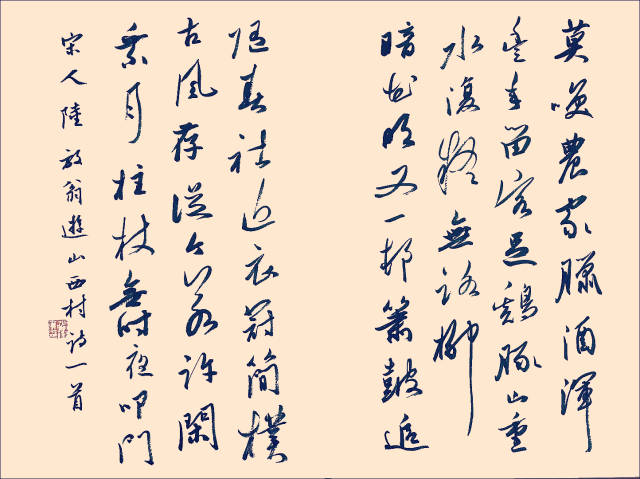 莫咲農家臘酒渾
豐年留客足鷄豚山重
水復疑無路柳
暗花明又一邨簫鼓追
隨春社近衣冠簡樸
古風存從今若許閑
乘月柱杖無時夜叩門
宋人陸放翁遊山西村詩一首